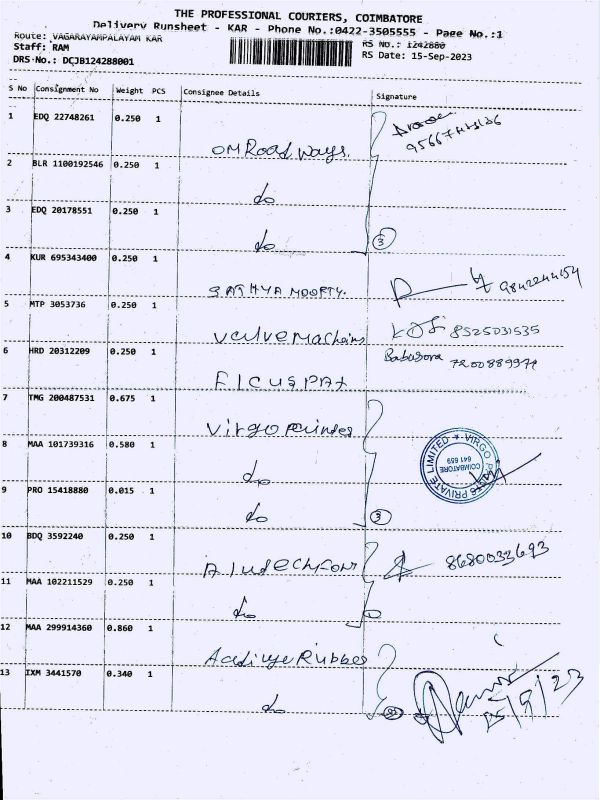 THE PROFESSIONAL COURIERS, COIMBATORE
Delivery Runsheet - KAR - Phone No.:0422-3505555 - Page No.:1
Route: VAGARAYAMPALAYAM KAR
RS No.: 1242880
Staff: RAM
RS Date: 15-Sep-2023
DRS No.: DCJB124288001
S No Consignment No Weight PCS Consignee Details Signature
1 EDQ 22748261 0.250 1
OM Road ways.
2 BLR 1100192546 0.250 1
do
3 EDQ 20178551 0.250 1
do 3
4 KUR 695343400 0.250 1
SATHYA MOORTY. 9842244154
5 MTP 3053736 0.250 1
Valve Machains 8525031535
6 HRD 20312209 0.250 1
FICUS PAX 7200889971
7 TMG 200487531 0.675 1
Virgo
8 MAA 101739316 0.580 1
do
VIRGO PRIVATE LIMITED
COIMBATORE
641 659
9 PRO 15418880 0.015 1
do 3
10 BDQ 3592240 0.250 1
8680033693
11 MAA 102211529 0.250 1
do
12 MAA 299914360 0.860 1
Active Rubber
13 IXM 3441570 0.340 1
do
15/9/23